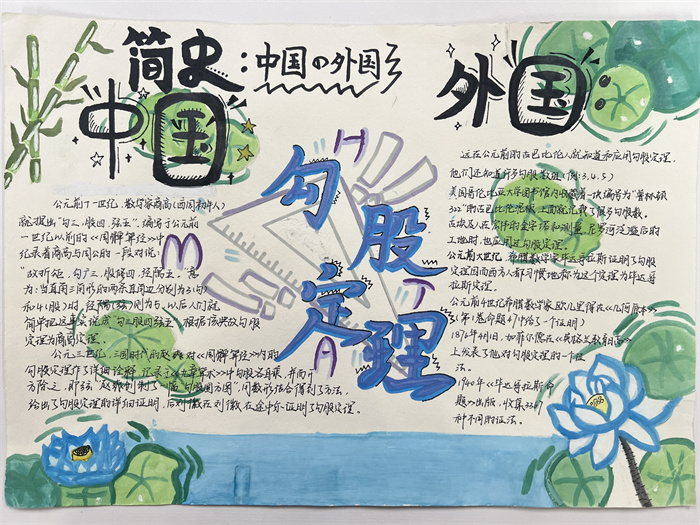 简史:中国の外国
中国
公元前十一世纪,数学家商高(西周初年人)
就提出“勾三、股四、弦五”。编写于公元前
一世纪以前的《周髀算经》中
纪录着商高与周公的一段对说:
“故折矩,勾广三,股修四,经隅五。”意
为:当直角三角形的两条直角边分别为3(勾)
和4(股)时,径隅(弦)则为5,以后人们就
简单把这事实说成“勾三股四弦五”,根据该典故勾股
定理为商高定理。
公元三世纪,三国时代的赵爽对《周髀算经》内的
勾股定理作了详细注释,记录于《九章算术》中
给出了勾股定理的详细证明,后刘徽在刘徽在
证明了勾股定理。
M
H
A
T
勾股定理
外国
远在公元前的古巴比伦人就知道和应用勾股定理,
他们还知道许多勾股数组(例:3,4,5)
美国哥伦比亚大学图书馆内收藏着一块编号为“普林顿
322”的古巴比伦泥板,上面就记载了很多勾股数。
古埃及人在
土地时,也应用过勾股定理。
公元前六世纪,希腊数学家毕达哥拉斯证明了勾股
定理因而西方人都习惯地称为这个定理为毕达哥
拉斯定理。
公元前4世纪希腊数学家欧几里得在《几何原本》
(第1卷,命题47中给了一个证明)
1876年4月1日,加菲尔德在《
上发表了他对勾股定理的一个证
法。
1940年《毕达哥拉斯命
题》出版,收集了367
种不同的证法。